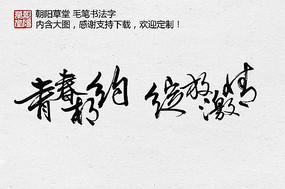 朝阳草堂 毛笔书法字
内含大图，感谢支持下载，欢迎定制！
青春相约 绽放激情